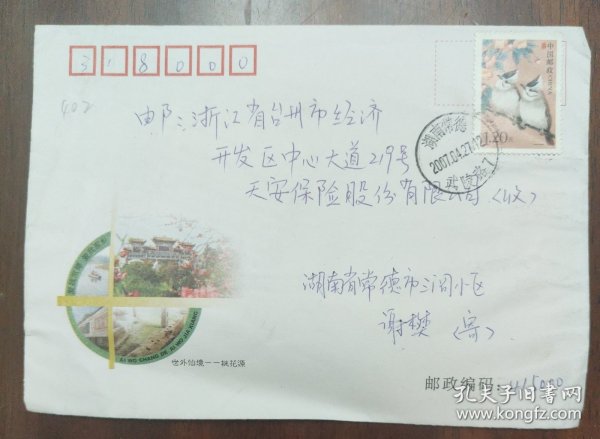 318000
402
中国邮政
CHINA
1.20元
邮:浙江省台州市经济
湖南常德
2007.04.27.12
武陵
开发区中心大道219号
天安保险股份有限公司(收)
湖南省常德市三闾小区
谢樊(寄)
AI WO CHANG DE, AI WO JIA XIANG
世外仙境——桃花源
邮政编码:415000
孔夫子旧书网
www.kongfz.com